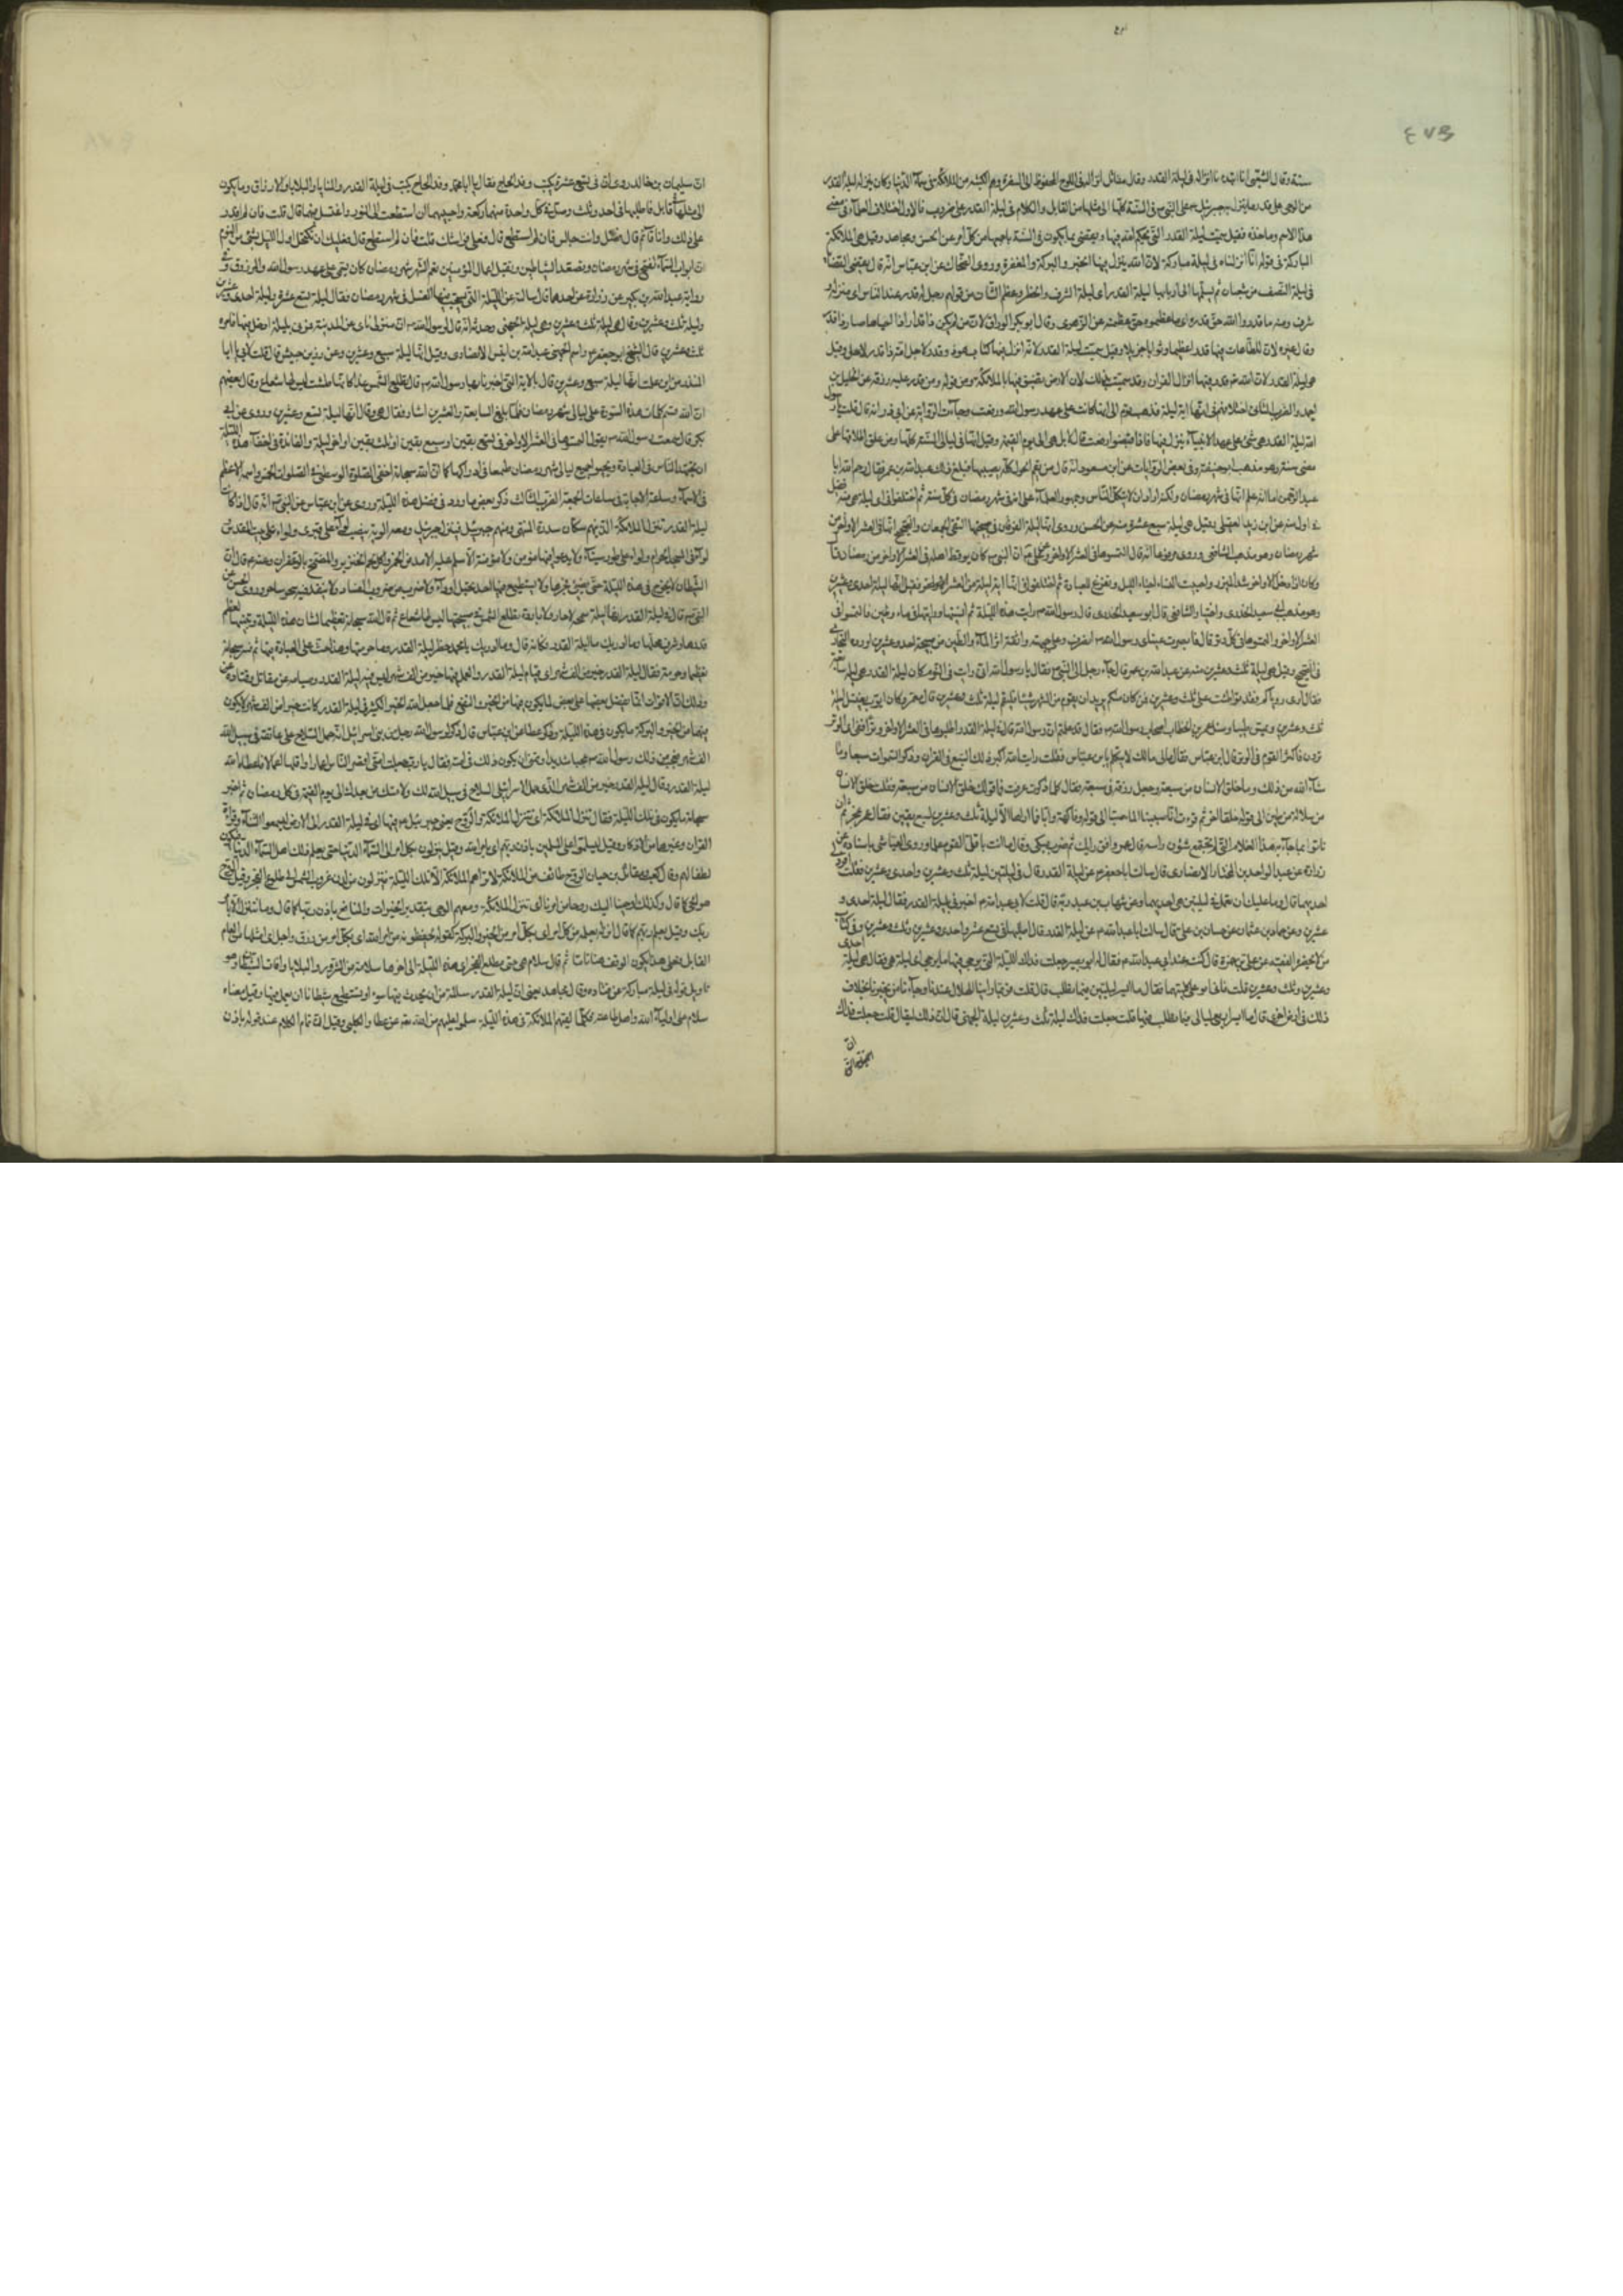 ٤٧٥
سنة وقال الشيعي انا ابتدأنا انزاله في ليلة القدر وقال مقاتل انزله من اللوح المحفوظ الى السفرة وهم الكتبة من الملائكة في سماء الدنيا وكان ينزل ليلة القدر
من الوحي على قدر ما ينزل به جبرئيل على النبي في السنة كلها الى مثلها من القابل والكلام في ليلة القدر على ضروب فالاول اختلاف العلماء في معنى
هذا الاسم وماخذه فقيل سميت ليلة القدر التي يحكم الله فيها ويقضي بما يكون في السنة باجمعها من كل امر عن الحسن ومجاهد وقيل هي الليلة
المباركة في قوله انا انزلناه في ليلة مباركة لان الله ينزل فيها الخير والبركة والمغفرة وروى الضحاك عن ابن عباس انه قال يقضي القضايا
في ليلة النصف من شعبان ثم يسلمها الى اربابها ليلة القدر اي ليلة الشرف والخطر وعظم الشان من قولهم رجل له قدر عند الناس اي منزلة و
شرف ومنه ما قدروا الله حق قدره اي ما عظموه حق عظمته عن الزهري وقال ابو بكر الوراق لان من لم يكن ذا قدر اذا احياها صار ذا قدر
وقال غيره لان للطاعات فيها قدرا عظيما وثوابا جزيلا وقيل سميت ليلة القدر لانه انزل فيها كتاب
هي ليلة القدر لان الله قدر فيها انزال القران وقد سميت بذلك لان الارض تضيق فيها بالملائكة من قوله ومن قدر عليه رزقه عن الخليل بن
احمد والضرب الثاني اختلافهم في انها اية ليلة فذهب قوم الى انها كانت على عهد رسول الله ورفعت وجاءت الرواية عن ابي ذر انه قال قلت يا رسول
الله ليلة القدر هي شيء على عهد الانبياء ينزل فيها فاذا قبضوا رفعت قال لا بل هي الى يوم القيمة وقيل انها في ليالي السنة كلها ومن علق طلاق امراته على
مضي سنة وهو مذهب ابو حنيفة وفي بعض الروايات عن ابن مسعود انه قال من يقم الحول كله يصيبها فبلغ ذلك عبد الله بن عمر فقال رحم الله ابا
عبد الرحمن اما انه علم انها في شهر رمضان ولكنه اراد ان لا يتكل الناس وجمهور العلماء على انها في شهر رمضان في كل سنة ثم اختلفوا في اي ليلة هي منه فقيل
اول ليلة منه عن ابن زيد العقيلي وقيل هي ليلة سبع عشرة منه عن الحسن وروي انها ليلة الفرقان في صبيحتها التقى الجمعان والصحيح انها في العشر الاواخر من
شهر رمضان وهو مذهب الشافعي وروي مرفوعا انه قال التمسوها في العشر الاواخر وعن علي ان النبي كان يوقظ اهله في العشر الاواخر من رمضان قال
وكان اذا دخل الاواخر شد الميزر واجتنب النساء واحيا الليل وتفرغ للعبادة ثم اختلفوا في انها اية ليلة من العشر الاواخر فقيل انها ليلة احدى وعشرين
وهو مذهب ابي سعيد الخدري واختيار الشافعي قال ابو سعيد الخدري قال رسول الله رايت هذه الليلة ثم انسيتها ورايتني اسجد في ماء وطين فالتمسوها في
العشر الاواخر والتمسوها في كل وتر قال فابصرت عيناي رسول الله انصرف وعلى جبهته وانفه اثر الماء والطين من صبيحة احدى وعشرين اورده البخاري
في الصحيح وقيل هي ليلة ثلث وعشرين منه عن عبد الله بن عمر قال جاء رجل الى النبي فقال يا رسول الله اني رايت في النوم كان ليلة القدر هي ليلة سابعة
فقال ارى رؤياكم قد تواطئت على ثلث وعشرين فمن كان منكم يريد ان يقوم من الشهر شيئا فليقم ليلة ثلث وعشرين قال معمر وكان ايوب يغتسل ليلة
ثلث وعشرين ويمس طيبا وسال عمر بن الخطاب اصحاب رسول الله فقال قد علمتم ان رسول الله قال في ليلة القدر اطلبوها في العشر الاواخر وترا ففي اي الوتر
ترون فاكثر القوم في الوتر قال ابن عباس فقال لي مالك لا تتكلم يا ابن عباس فقلت رايت الله اكثر ذكر السبع في القران وذكر السموات سبعا وما
شاء الله من ذلك وما خلق الانسان من سبعة وجعل رزقه في سبعة فقال كلما ذكرت عرفت فما قولك خلق الانسان من سبعة فقلت خلق الانسان
من سلالة من طين الى قوله خلقا اخر ثم قرات انا صببنا الماء صبا الى قوله وفاكهة وابا فما اراها الا ليلة ثلث وعشرين لسبع بقين فقال عمر عجزتم ان
تاتوا بما جاء به هذا الغلام الذي لم تجتمع شؤون راسه قال عمر وافق رايي رايك ثم ضرب منكبي وقال ما انت باقل القوم علما وروى العياشي باسناده عن
زرارة عن عبد الواحد بن المختار الانصاري قال سالت ابا جعفر عن ليلة القدر قال في ليلتين ليلة ثلث وعشرين واحدى وعشرين فقلت افرد لي
احديهما قال وما عليك ان تعمل في ليلتين هي احديهما وعن شهاب بن عبد ربه قال قلت لابي عبد الله اخبرني بليلة القدر فقال ليلة احدى و
عشرين وعن حماد بن عثمان عن حسان بن علي قال سالت ابا عبد الله عن ليلة القدر قال اطلبها في تسع عشرة واحدى وعشرين وثلث وعشرين وفي كتاب
من لا يحضره الفقيه عن علي بن حمزة قال كنت عند ابي عبد الله فقال له ابو بصير جعلت فداك الليلة التي يرجى فيها ما يرجى اي ليلة هي فقال هي ليلة احدى
وعشرين وثلث وعشرين قلت فان لم اقو على كليتهما فقال ما ايسر ليلتين فيما تطلب قال قلت فربما راينا الهلال عندنا وجاءنا من يخبرنا بخلاف
ذلك في ارض اخرى قال ما ايسر اربع ليالي فيما تطلب فيها قلت جعلت فداك ليلة ثلث وعشرين ليلة الجهني قال ان ذلك ليقال قلت جعلت فداك
ان
ان سليمان بن خالد روى ان في تسع عشرة يكتب وفد الحاج فقال يا ابا محمد وفد الحاج يكتب في ليلة القدر والمنايا والبلايا والارزاق وما يكون
الى مثلها في قابل فاطلبها في احدى وثلث وصل في كل واحدة منهما مائة ركعة واحيهما ان استطعت الى النور واغتسل فيهما قال قلت فان لم اقدر
على ذلك وانا قائم قال فصل وانت جالس قلت فان لم استطع قال فعلى فراشك قلت فان لم استطع قال فلا عليك ان تكتحل اول الليل بشيء من النوم
ان ابواب السماء تفتح في شهر رمضان وتصفد الشياطين وتقبل اعمال المؤمنين نعم الشهر شهر رمضان كان يسمى على عهد رسول الله المرزوق وفي
رواية عبد الله بن بكير عن زرارة عن احدهما قال سالته عن الليلة التي يستحب فيها الغسل في شهر رمضان فقال ليلة تسع عشرة وليلة احدى وعشرين
وليلة ثلث وعشرين وقال هي ليلة ثلث وعشرين وهي ليلة الجهني وحديثه انه قال لرسول الله ان منزلي ناي عن المدينة فمرني بليلة ادخل فيها فامره بليلة
ثلث وعشرين قال الشيخ ابو جعفر واسم الجهني عبد الله بن انيس الانصاري وقيل انها ليلة سبع وعشرين وعن زر بن حبيش قال قلت لابي يا ابا
المنذر من اين علمت انها ليلة سبع وعشرين قال بالاية التي اخبرنا بها رسول الله قال تطلع الشمس غداتئذ كانها طست ليس لها شعاع وقال بعضهم
ان الله قسم كلمات هذه السورة على ليالي شهر رمضان فلما بلغ السابعة والعشرين اشار فقال هي وقال انها ليلة تسع وعشرين وروي عن ابي
بكرة قال سمعت رسول الله يقول التمسوها في العشر الاواخر في تسع بقين او سبع بقين او ثلث بقين او اخر ليلة والفائدة في اخفاء هذه الليلة
ان يجتهد الناس في العبادة ويحيوا جميع ليالي شهر رمضان طمعا في ادراكها كما ان الله سبحانه اخفى الصلوة الوسطى في الصلوات الخمس واسمه الاعظم
في الاسماء وساعة الاجابة في ساعات الجمعة الضرب الثالث ذكر بعض ما ورد في فضل هذه الليلة روى عن ابن عباس عن النبي انه قال اذا كان
ليلة القدر تنزل الملائكة الذين هم سكان سدرة المنتهى ومنهم جبرئيل فينزل جبرئيل ومعه الوية ينصب لواء على قبري ولواء على بيت المقدس
لواء في المسجد الحرام ولواء على طور سيناء ولا يدع فيها مؤمن ولا مؤمنة الا سلم عليه الا مدمن الخمر واكل لحم الخنزير والمتضمخ بالزعفران وعنه قال ان
الشيطان لا يخرج في هذه الليلة حتى يضيء فجرها ولا يستطيع فيها احد بخبل او داء ولا ضرب من ضروب الفساد ولا ينفذ فيه سحر ساحر وروى الحسن عن
النبي قال في ليلة القدر انها ليلة سمحة لا حارة ولا باردة تطلع الشمس في صبيحتها ليس لها شعاع ثم قال الله سبحانه تعظيما لشان هذه الليلة وتنبيها لعظم
قدرها وشرف محلها وما ادريك ما ليلة القدر وكانه قال وما ادريك يا محمد ما خطر ليلة القدر وما حرمتها وهذا حث على العبادة فيها ثم فسر سبحانه
تعظيمها وحرمته فقال ليلة القدر خير من الف شهر اي قيام ليلة القدر والعمل فيها خير من الف شهر ليس فيه ليلة القدر وصيامه عن مقاتل وقتادة
وذلك ان الاوقات انما يفضل بعضها على بعض لما يكون فيها من الخير والنفع فلما جعل الله الخير الكثير في ليلة القدر كانت خيرا من الف شهر لا يكون
فيها من الخير والبركة ما يكون في هذه الليلة وذكر عطا عن ابن عباس قال ذكر لرسول الله رجل من بني اسرائيل انه حمل السلاح على عاتقه في سبيل الله
الف شهر فعجب من ذلك رسول الله عجبا شديدا وتمنى ان يكون ذلك في امته فقال يا رب جعلت امتي اقصر الناس اعمارا واقلها اعمالا فاعطاه الله
ليلة القدر وقال ليلة القدر خير من الف شهر الذي حمل الاسرائيلي السلاح في سبيل الله لك ولامتك من بعدك الى يوم القيمة في كل رمضان ثم اخبر
سبحانه ما يكون في تلك الليلة فقال تنزل الملائكة اي تتنزل الملائكة والروح يعني جبرئيل فيها اي في ليلة القدر الى الارض ليسمعوا الثناء وقراءة
القران وغيرها من الاذكار وقيل ليسلموا على المسلمين باذن ربهم اي بامر الله وقيل ينزلون بكل امر الى السماء الدنيا حتى يعلم ذلك اهل السماء الدنيا فيكون
لطفا لهم وقال كعب ومقاتل بن حيان الروح طائفة من الملائكة لا تراهم الملائكة الا تلك الليلة ينزلون من لدن غروب الشمس الى طلوع الفجر وقيل الروح
هو الوحي كما قال وكذلك اوحينا اليك روحا من امرنا اي تنزل الملائكة ومعهم الوحي بتقدير الخيرات والمنافع باذن ربهم كما قال وما نتنزل الا بامر
ربك وقيل بعلم ربهم كما قال انزله بعلمه من كل امر اي بكل امر من الخير والبركة كقوله يحفظونه من امر الله اي بكل امر من رزق واجل الى مثلها من العام
القابل فعلى هذا يكون الوقف هنا تاما ثم قال سلام هي حتى مطلع الفجر اي هذه الليلة الى اخرها سلامة من الشرور والبلايا وافات الشيطان وهو
تاويل قوله في ليلة مباركة عن قتادة وقال مجاهد يعني ان ليلة القدر سالمة من ان يحدث فيها سوء او يستطيع شيطان ان يعمل فيها وقيل معناه
سلام على اولياء الله واهل طاعته فكلما لقيهم الملائكة في هذه الليلة سلموا عليهم من الله تعالى عن عطا والكلبي وقيل ان تمام الكلام عند قوله باذن